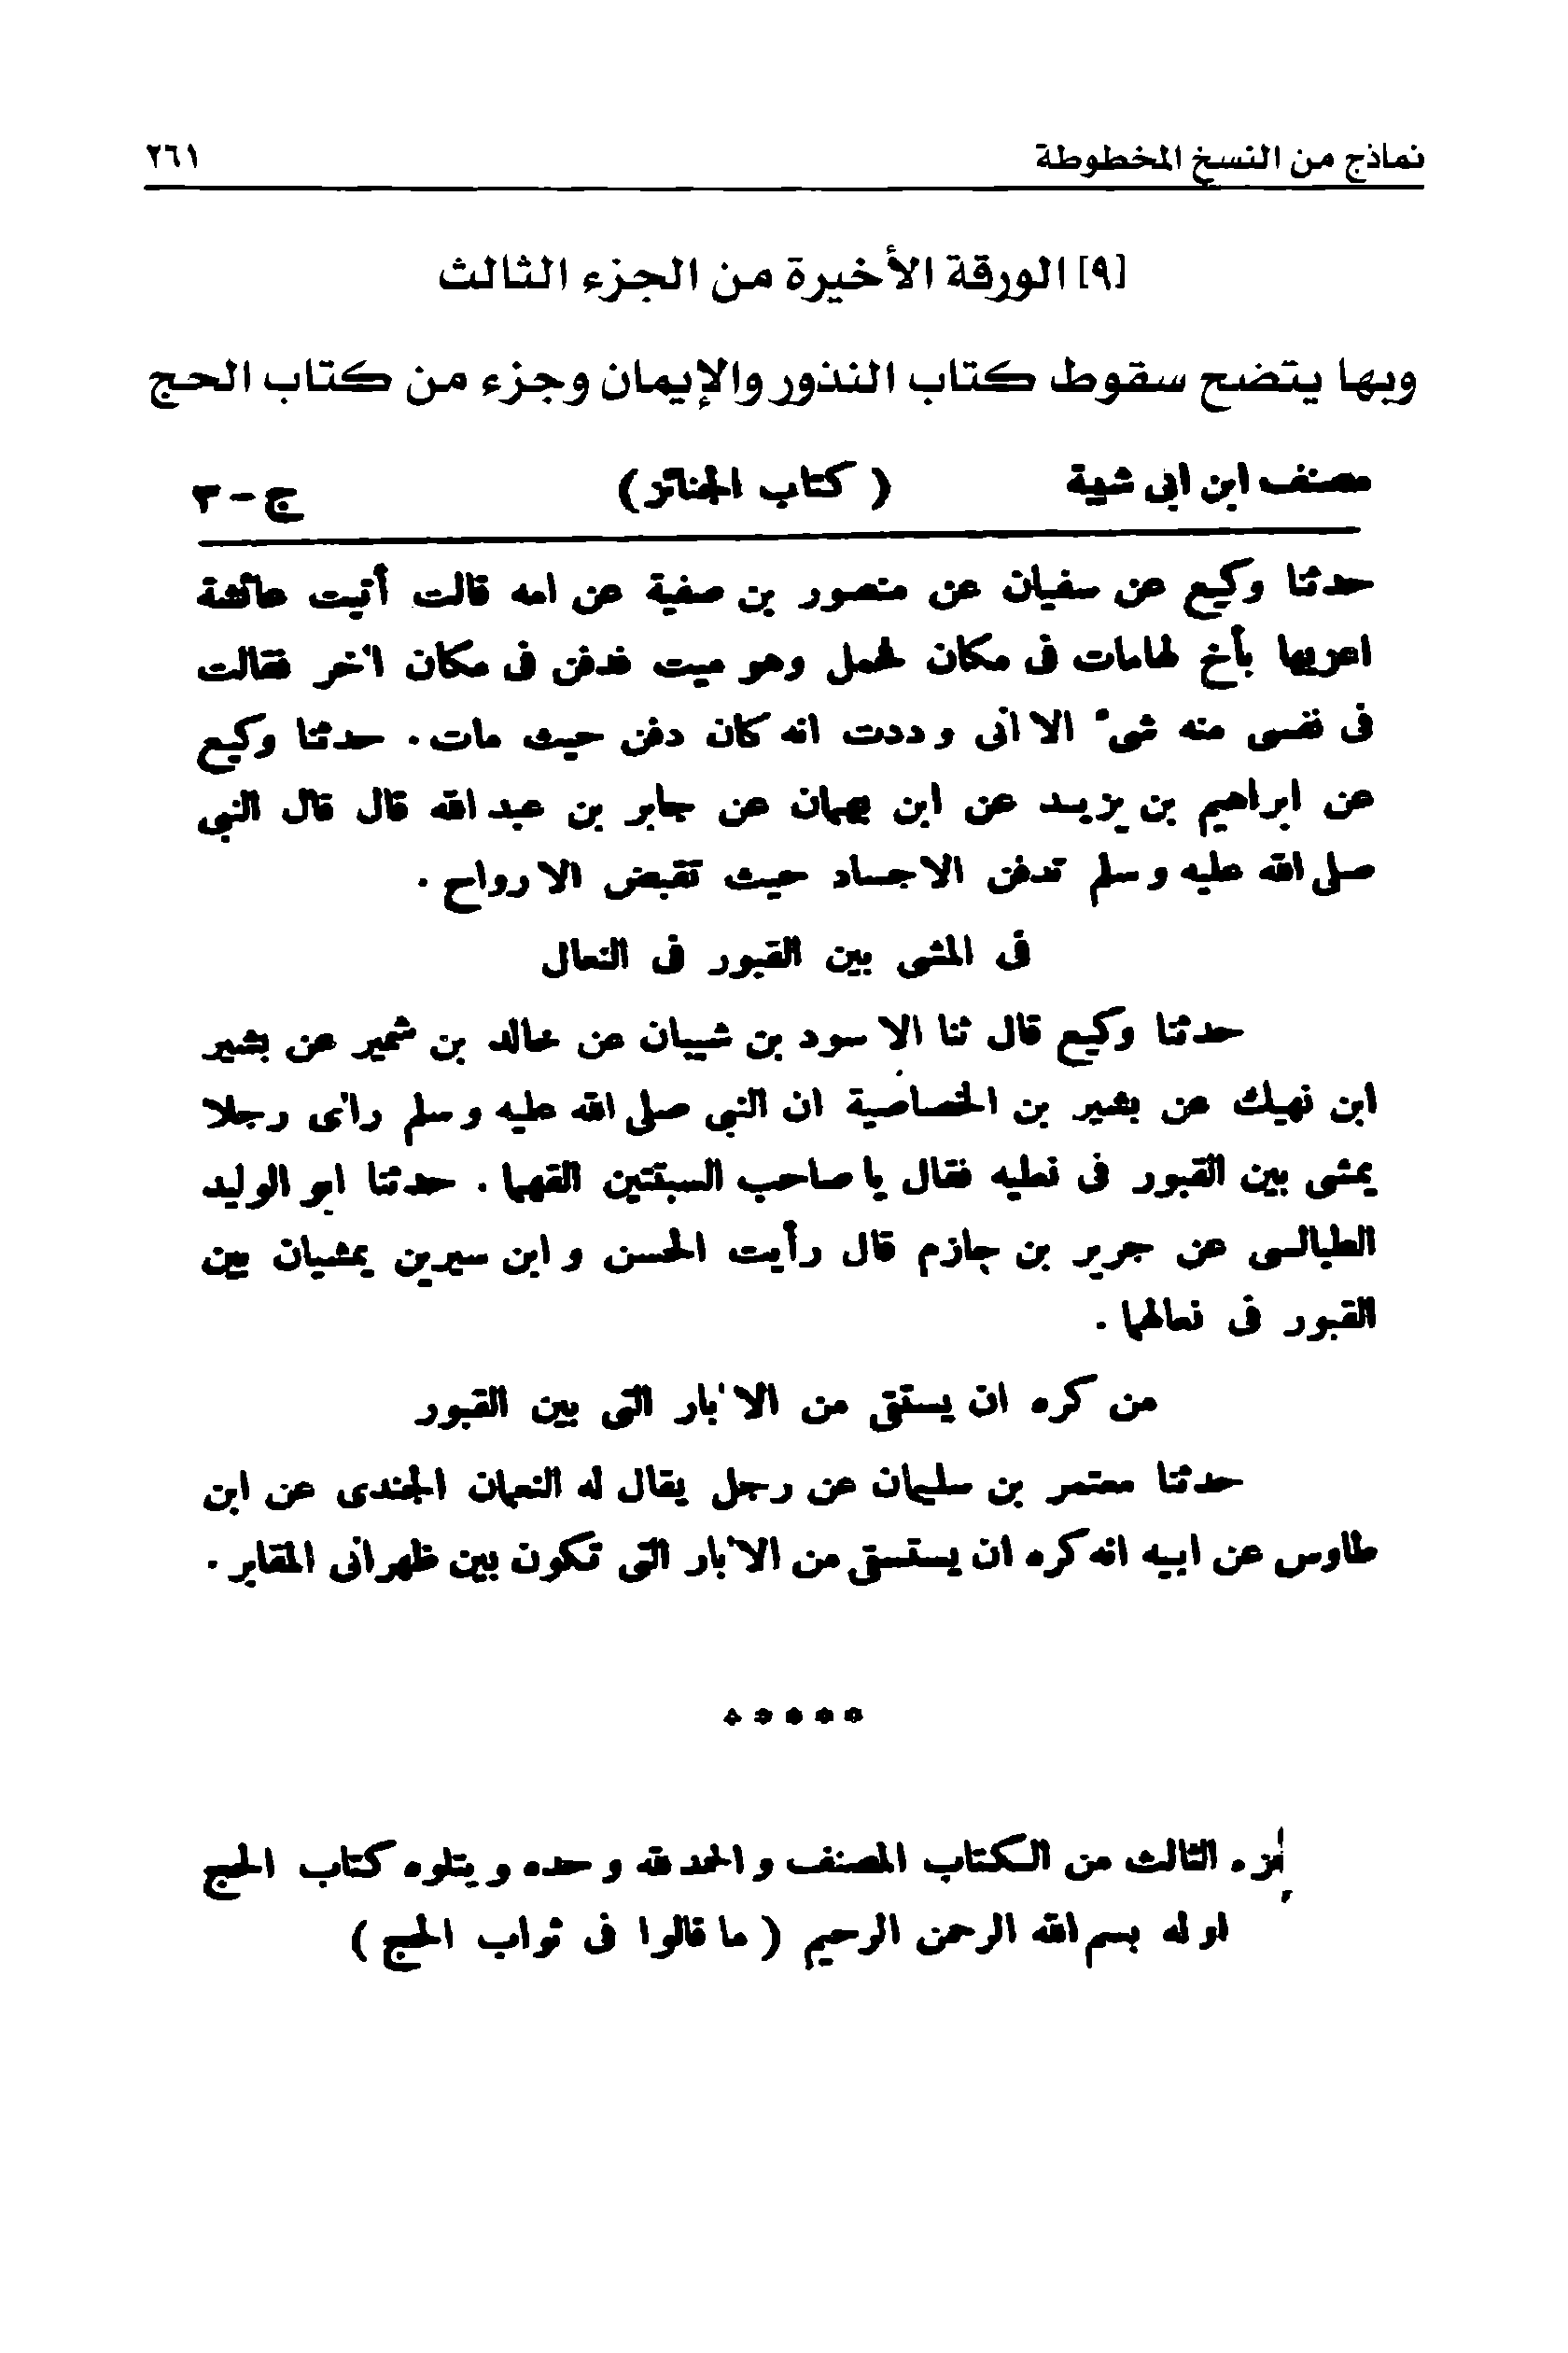 نماذج من النسخ المخطوطة ٢٦١
[٩] الورقة الأخيرة من الجزء الثالث
وبها يتضح سقوط كتاب النذور والإيمان وجزء من كتاب الحج
مصنف ابن ابى شيبة ( كتاب الجنائز ) ج - ٣
حدثنا وكيع عن سفيان عن منصور بن صفية عن امه قالت أتيت عائشة
اعزيها بأخ لها مات فى مكان لحمل وهو ميت فدفن فى مكان اٰخر فقالت
فى نفسى منه شىء الا انى و ددت انه كان دفن حيث مات . حدثنا وكيع
عن ابراهيم بن يزيد عن ابن بهمان عن جابر بن عبد الله قال قال النبى
صلى الله عليه و سلم تدفن الاجساد حيث تقبض الارواح .
فى المشى بين القبور فى النعال
حدثنا وكيع قال ثنا الاسود بن شيبان عن خالد بن شمير عن بشير
ابن نهيك عن بشير بن الخصاصية ان النبى صلى الله عليه و سلم راٰى رجلا
يمشى بين القبور فى نعليه فقال يا صاحب السبتتين القهما . حدثنا ابو الوليد
الطيالسى عن جرير بن جازم قال رأيت الحسن و ابن سيرين يمشيان بين
القبور فى نعالهما .
من كره ان يستقى من الاٰبار التى بين القبور
حدثنا معتمر بن سليمان عن رجل يقال له النعمان الجندى عن ابن
طاوس عن ابيه انه كره ان يستسقى من الاٰبار التى تكون بين ظهرانى المقابر .
* * * * *
الثالث من الكتاب المصنف و الحمد لله و حده و يتلوه كتاب الحج
اوله بسم الله الرحمن الرحيم ( ما قالوا فى ثواب الحج )